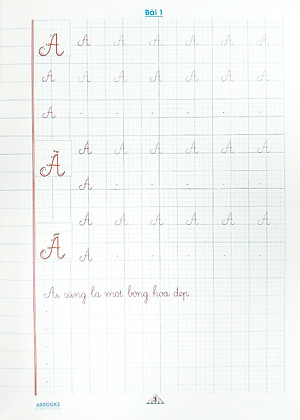 Bài 1
A A A A A A A
A A A A A A
A
Ă A A A A A A
A
Â A A A A A A
A
Ai cũng là một bông hoa đẹp
3
ABBOOKS